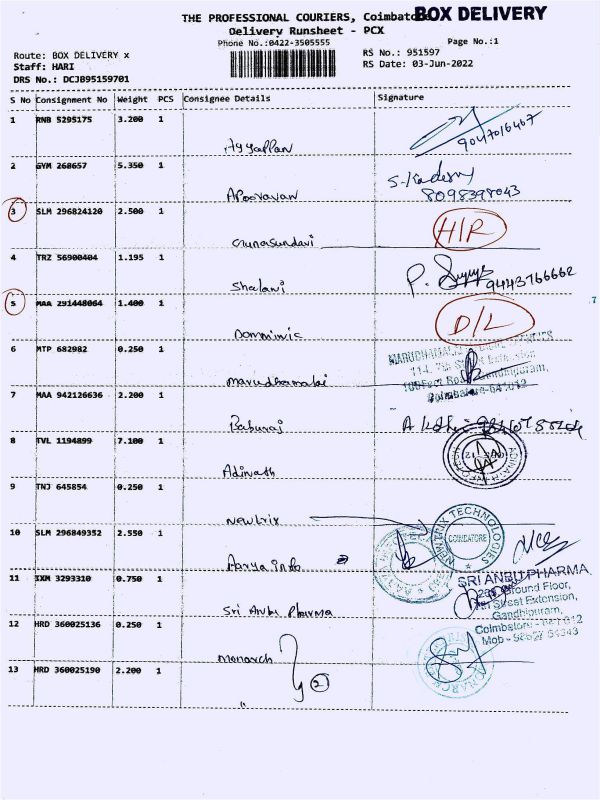 THE PROFESSIONAL COURIERS, Coimbatore
BOX DELIVERY
Delivery Runsheet - PCX
Phone No.:0422-3505555
Page No.:1
Route: BOX DELIVERY x
RS No.: 951597
Staff: HARI
RS Date: 03-Jun-2022
DRS No.: DCJB95159701
S No Consignment No Weight PCS Consignee Details Signature
1 RNB 5295175 3.200 1
Ayyappan 9047016467
2 GYM 268657 5.350 1
Apoorvavan 8098398043
3 SLM 296824120 2.500 1
Gunasundari H/R
4 TRZ 56900404 1.195 1
Shalani 9443766662
5 MAA 291448064 1.400 1
Dommimic D/L
6 MTP 682982 0.250 1
Marudhamalai
100 Feet Road, Gandhipuram,
Coimbatore-641012
7 MAA 942126636 2.200 1
Baburaj
8 TVL 1194899 7.100 1
Adinath
9 TNJ 645854 0.250 1
Newtrix
NEWTRIX TECHNOLOGIES
COIMBATORE
10 SLM 296849352 2.550 1
Aarya Info
11 IXM 3293310 0.750 1
Sri Anbu Pharma
SRI ANBU PHARMA
Ground Floor,
Street Extension,
Gandhipuram,
Coimbatore - 641 012
12 HRD 360025136 0.250 1
Monarch
13 HRD 360025190 2.200 1
2
"